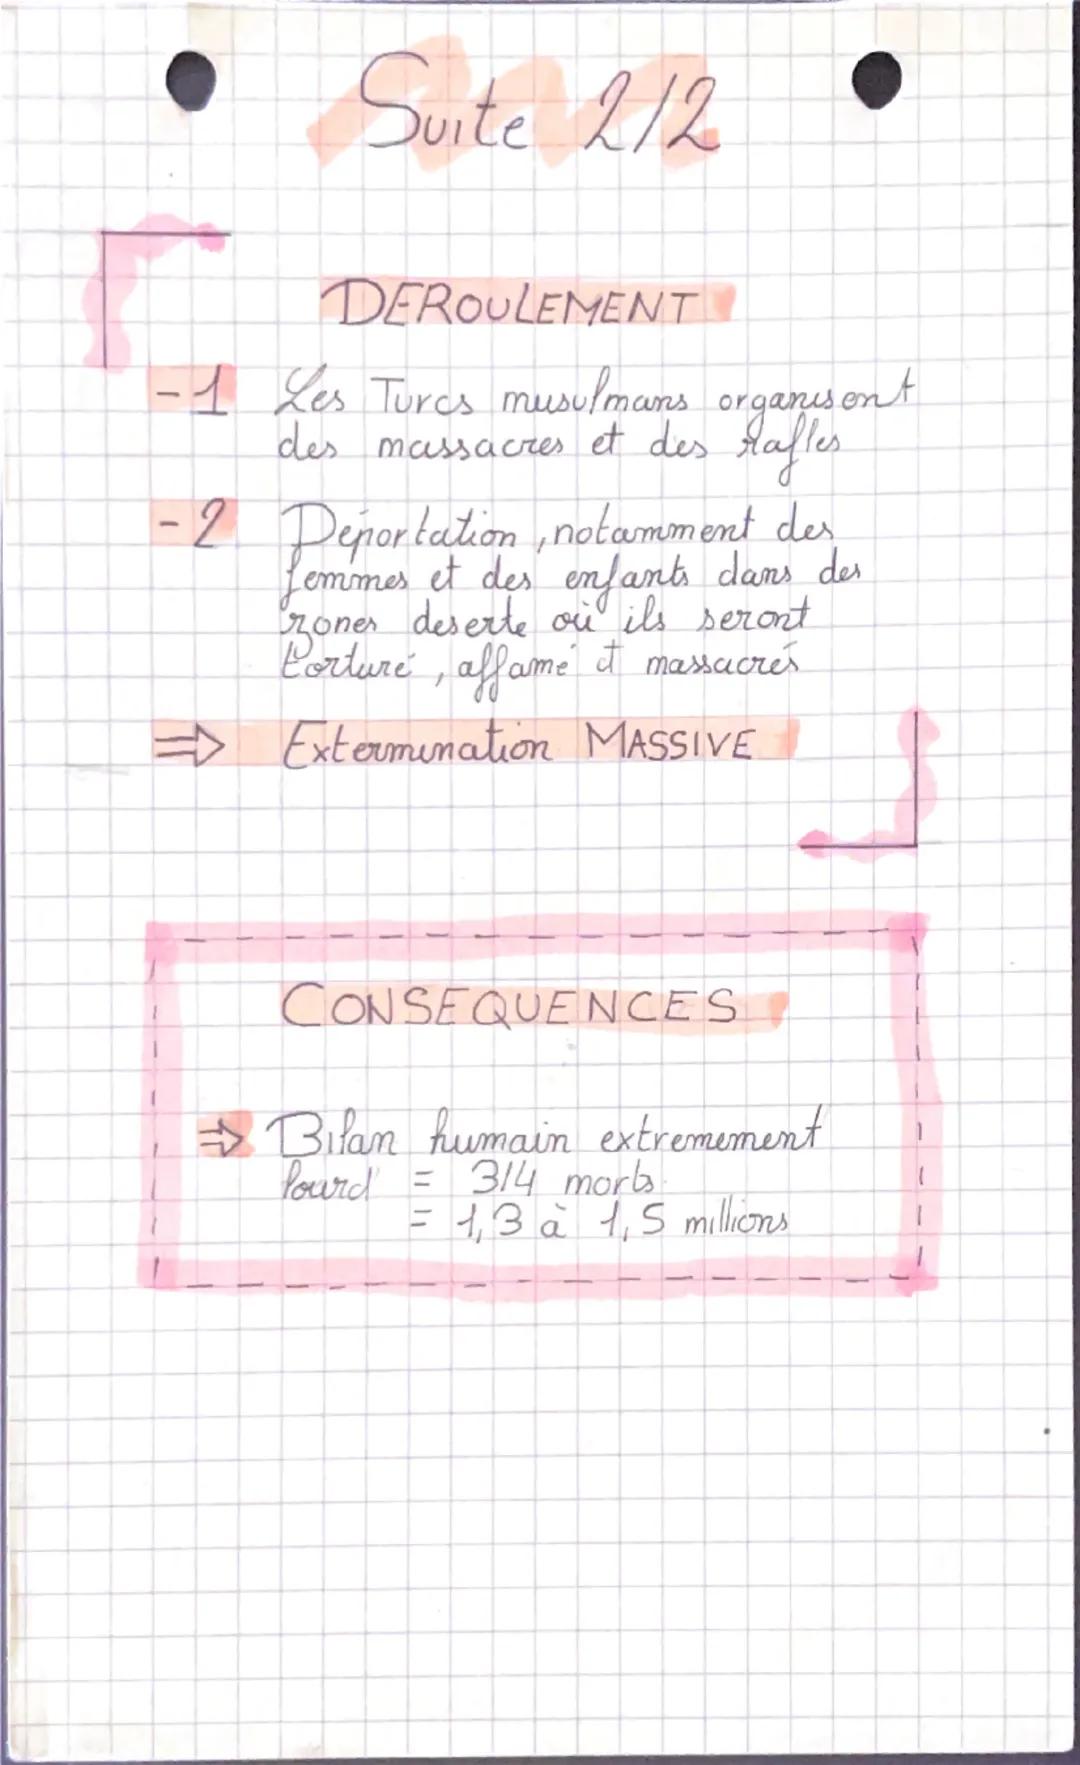 Suite 2/2
DEROULEMENT
-1 Les Turcs musulmans organisent
des massacres et des rafles
-2 Déportation, notamment des
femmes et des enfants dans des
zones deserte où ils seront
torturé, affamé et massacrés
⇒ Extermination MASSIVE
CONSEQUENCES
⇒ Bilan humain extremement
lourd = 3/4 morts
= 1,3 à 1,5 millions